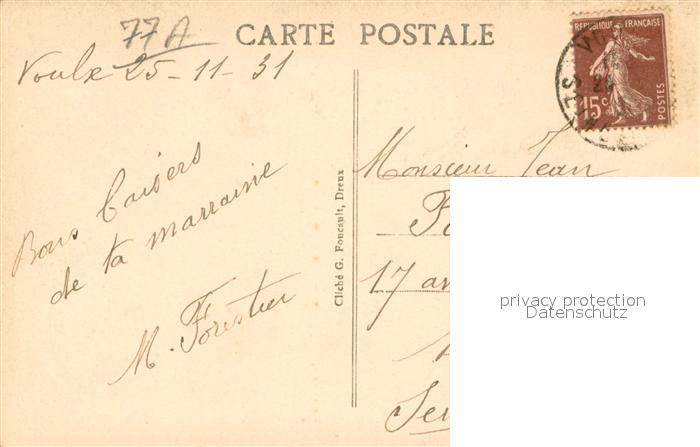 77A
CARTE POSTALE
Voulx 25-11-31
RÉPUBLIQUE FRANÇAISE
15c
POSTES
Bons baisers
de ta marraine
M. Forestier
Cliché G. Foucault, Dreux
Monsieur Jean
17 av
privacy protection
Datenschutz